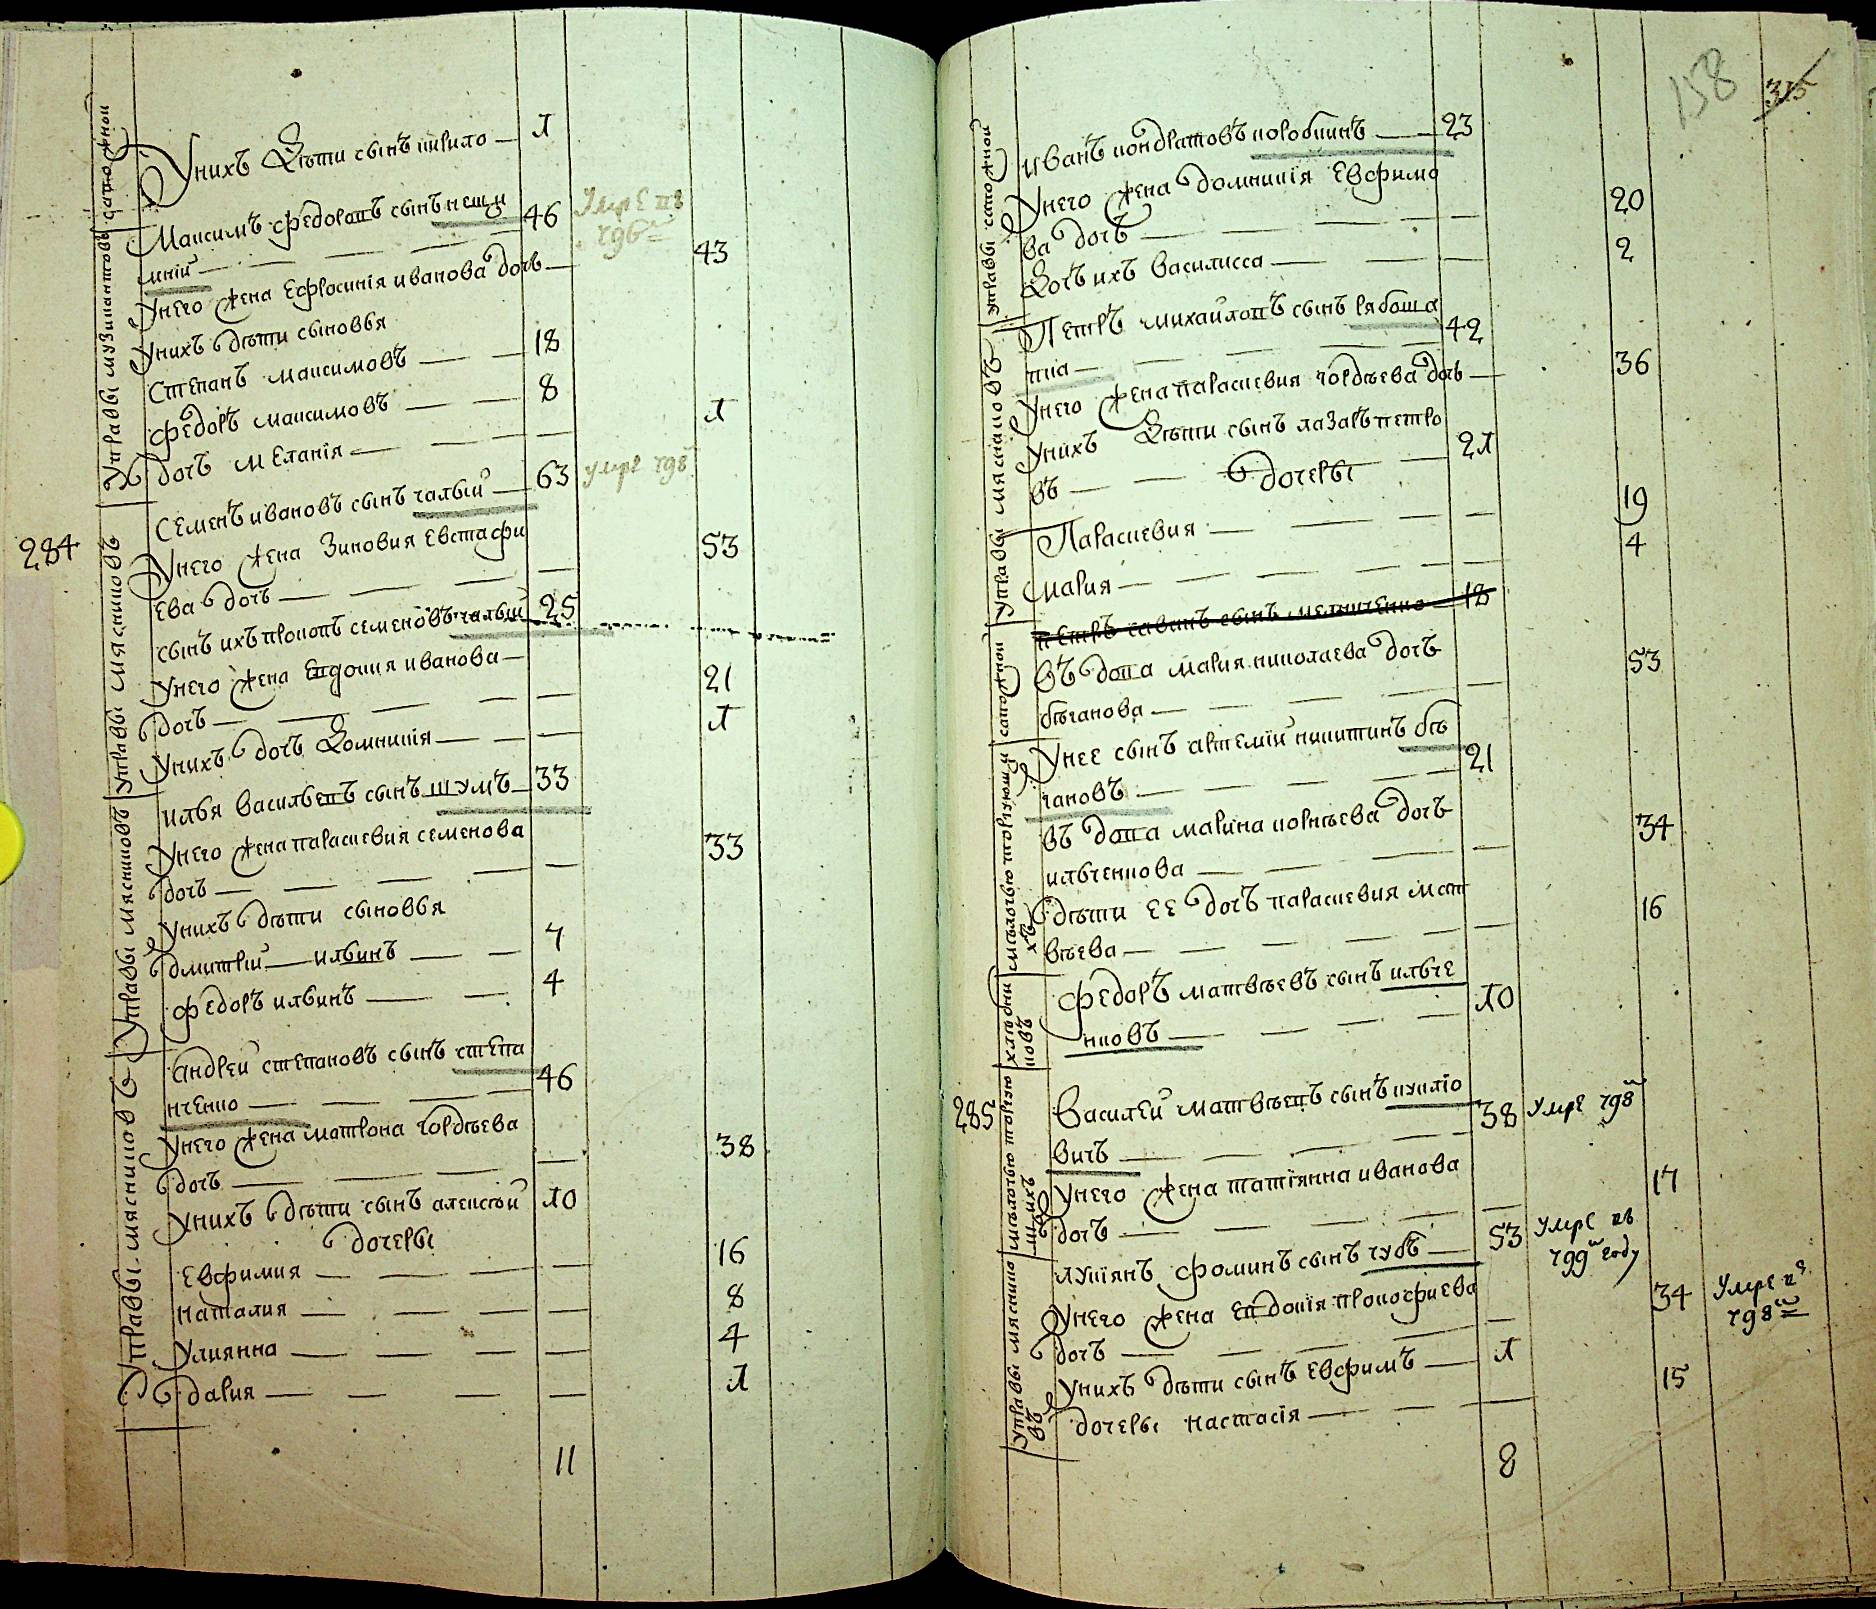 Управы музикантовъ
сапожной
Унихъ Дѣти сынъ кирило — 1
Максимъ федоровъ сынъ нещи 46 Умре въ
796м
мнiй —
Унего жена Ефросинiя иванова дочь — 43
Унихъ дѣти сыновья
Степанъ максимовъ — 18
Федоръ максимовъ — 8
дочь меланiя — 1
284
Управы мясниковъ
Семенъ ивановъ сынъ чалый — 63 умре 798
Унего жена Зиновия Евстафи
ева дочь — 53
сынъ ихъ прокопъ семеновъ чалый 25
Унего жена Евдокия иванова —
дочь — 21
Унихъ дочь Домникiя — 1
Управы мясниковъ
илья васильевъ сынъ шумъ — 33
Унего жена параскевия семенова
дочь — 33
Унихъ дѣти сыновья
дмитрiй — ильинъ — 7
федоръ ильинъ — 4
Управы мясниковъ
андрей степановъ сынъ степа
нченко — 46
Унего жена матрона гордѣева
дочь — 38
Унихъ дѣти сынъ алексѣй 10
дочеры
Евфимия — 16
Наталия — 8
Улиянна — 4
дария — 1
11
158
315
Управы сапожной
иванъ кондратовъ коробкинъ — 23
Унего жена домникiя Евфимо
ва дочь — 20
Дочь ихъ василисса — 2
Управы мясниковъ
Петръ михайловъ сынъ рябоша
пка — 42
Унего жена параскевия гордѣева дочь — 36
Унихъ Дѣти сынъ лазарь петро
въ — 21
дочеры
Параскевия — 19
Мария — 4
петръ савинъ сынъ мельниченко — 18
сапожной
въдова мария николаева дочь
бѣганова — 53
Унее сынъ артемiй никитинъ бѣ
гановъ — 21
мѣлочью торгующи
хъ
въдова марина корнѣева дочь
ильченкова — 34
дѣти ее дочь параскевия мат
вѣева — 16
хлѣбни
ковъ
федоръ матвѣевъ сынъ ильче
нковъ — 10
285
мѣлочью торгую
щихъ
василей матвѣевъ сынъ куклiо
вичъ — 38 умре 798м
Унего жена татiянна иванова
дочь — 17
Управы мяснико
въ
лукiянъ фоминъ сынъ чубъ — 53 умре въ
799м году
Унего жена Евдокiя прокофиева
дочь — 34 Умре въ
798м
Унихъ дѣти сынъ Евфимъ — 1
дочеры настасiя — 15
8